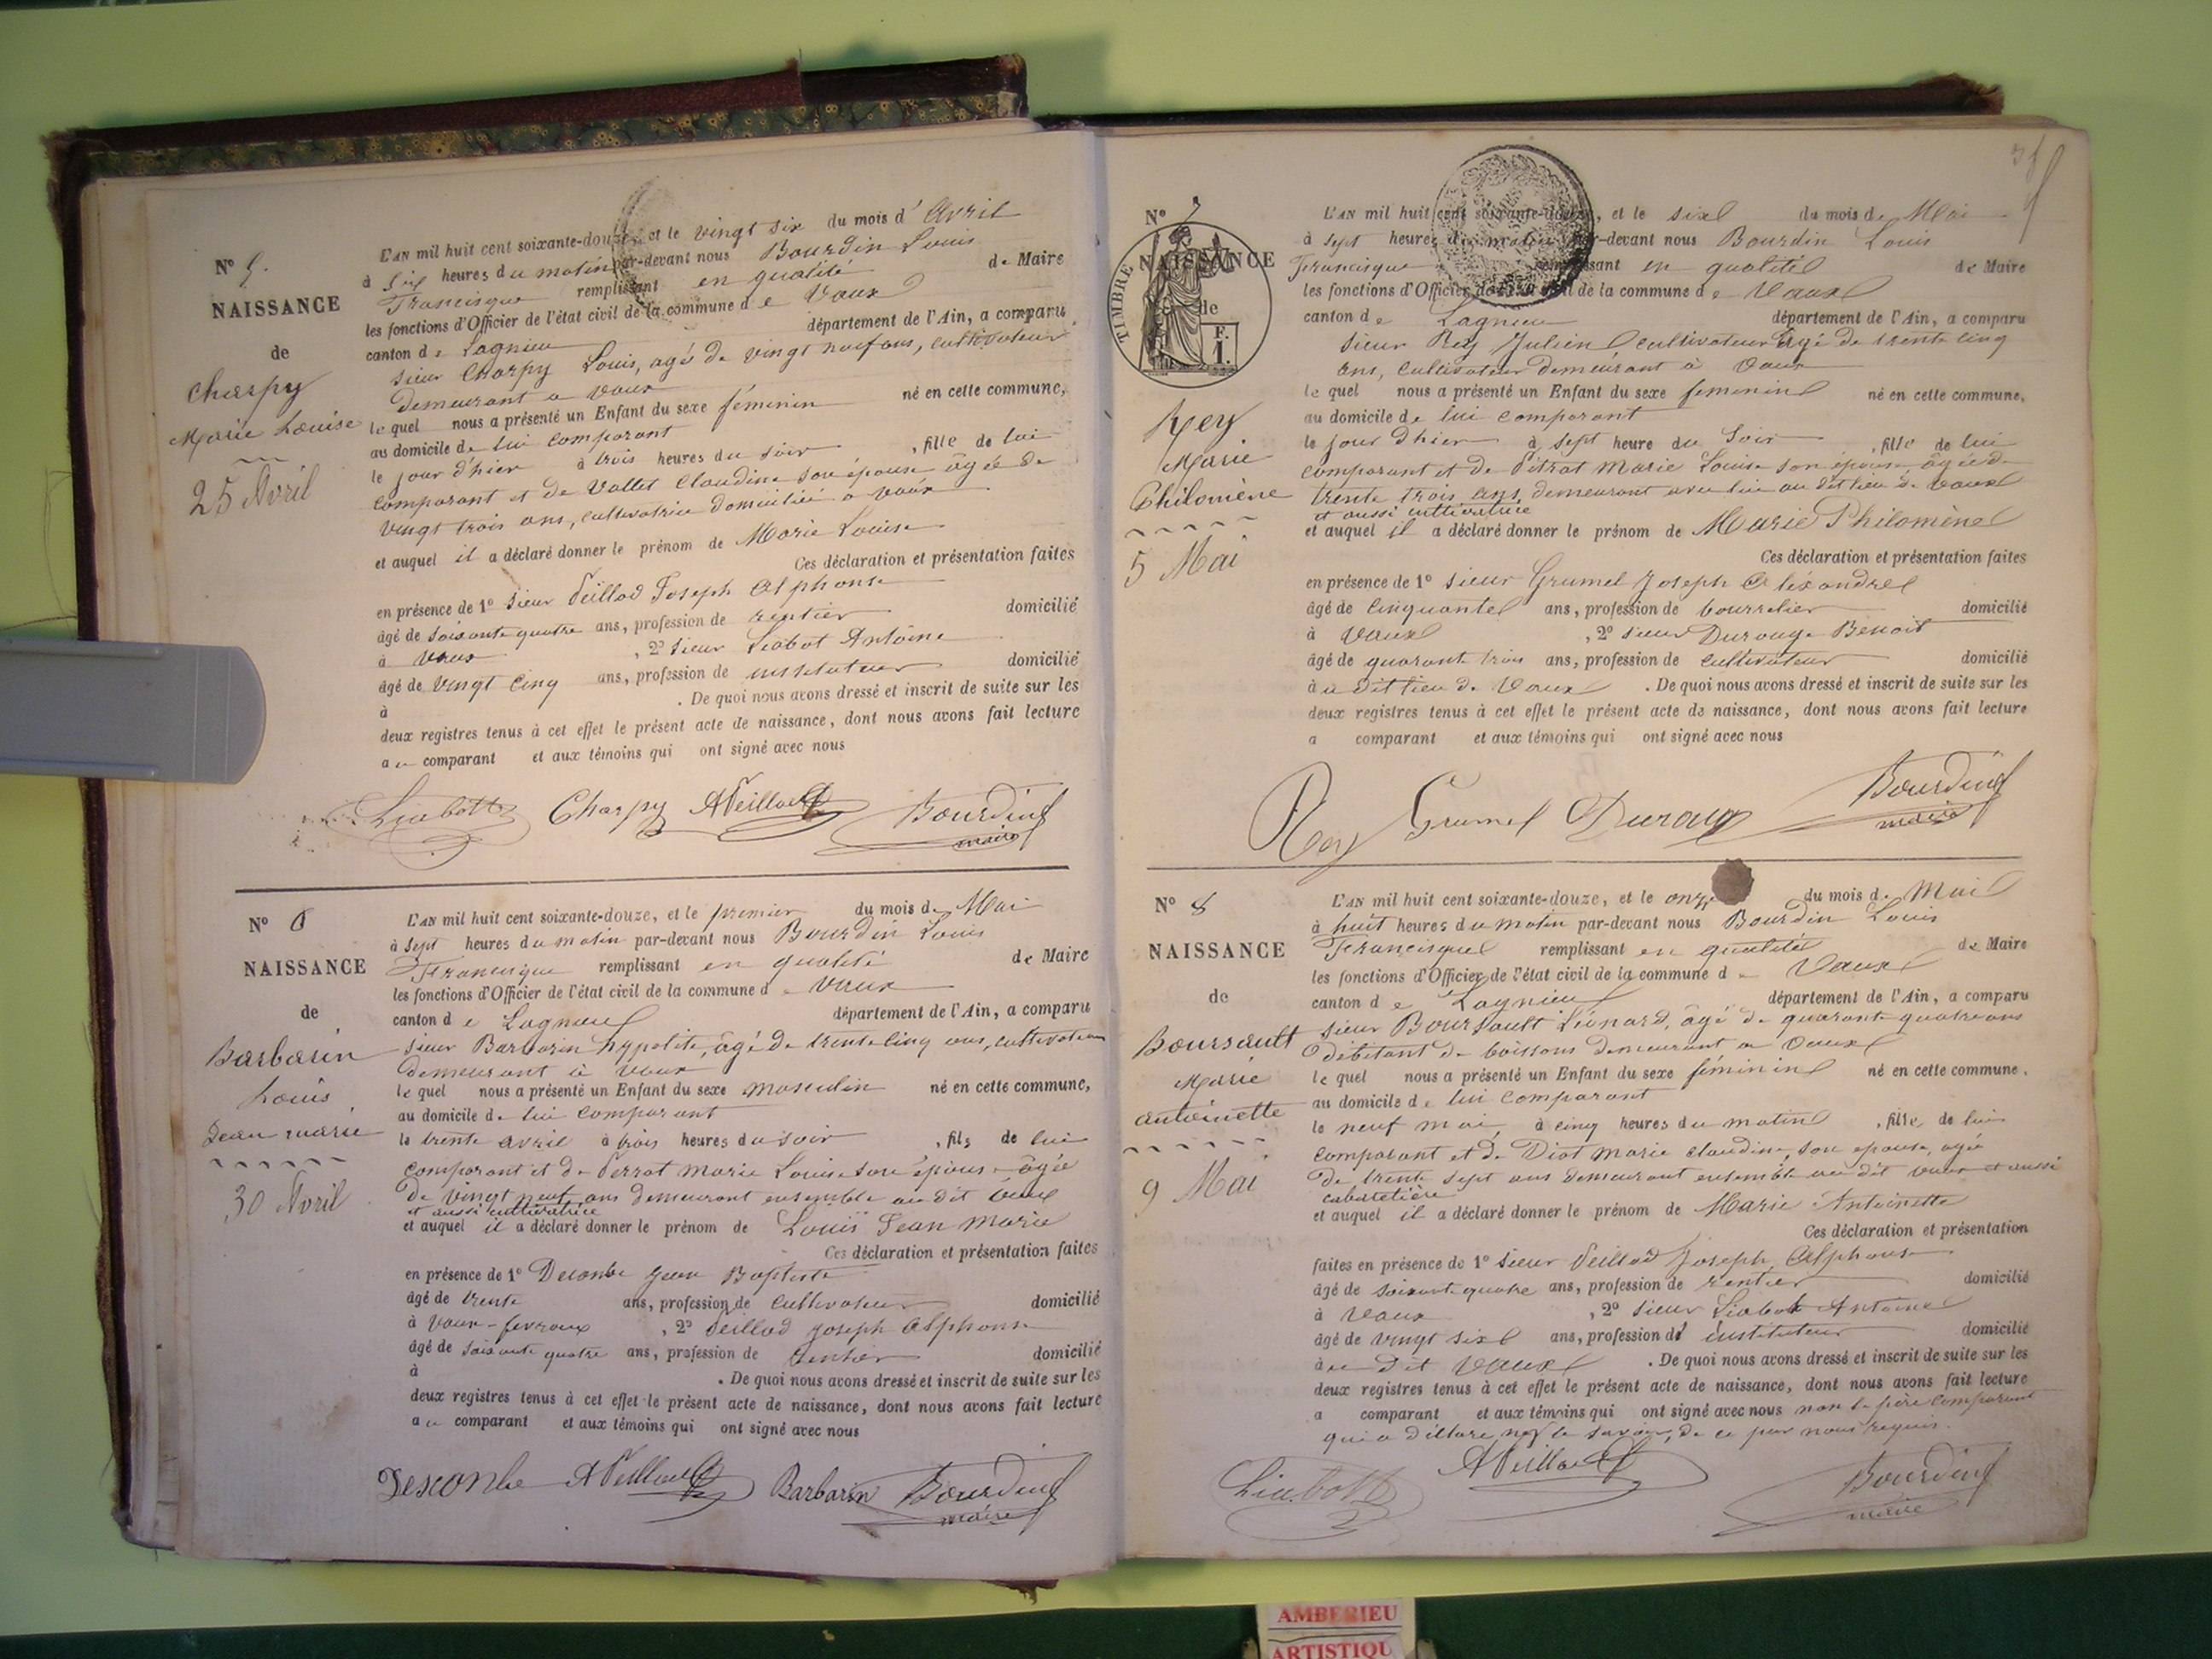 N° 5.
NAISSANCE
de
Charpy
Marie Louise
25 Avril
L'AN mil huit cent soixante-douze, et le vingt six du mois d' Avril
à six heures du matin par-devant nous Bourdin Louis
Francisque remplissant en qualité de Maire
les fonctions d'Officier de l'état civil de la commune de Vaux
canton de Lagnieu département de l'Ain, a comparu
sieur Charpy Louis, agé de vingt neuf ans, cultivateur
demeurant a vaux
le quel nous a présenté un Enfant du sexe féminin né en cette commune,
au domicile de lui comparant
le jour d'hier à trois heures du soir, fille de lui
comparant et de Vallet Claudine son épouse âgée de
vingt trois ans, cultivatrice domiciliée a vaux
et auquel il a déclaré donner le prénom de Marie Louise
Ces déclaration et présentation faites
en présence de 1° sieur Veillad Joseph Alphonse
âgé de soixante quatre ans, profession de rentier domicilié
à Vaux, 2° sieur Liabot Antoine
âgé de vingt cinq ans, profession de instituteur domicilié
à . De quoi nous avons dressé et inscrit de suite sur les
deux registres tenus à cet effet le présent acte de naissance, dont nous avons fait lecture
au comparant et aux témoins qui ont signé avec nous
Liabot Charpy AVeillad Bourdin
maire
N° 6
NAISSANCE
de
Barbarin
Louis
Jean marie
30 Avril
L'AN mil huit cent soixante-douze, et le premier du mois de Mai
à sept heures du matin par-devant nous Bourdin Louis
Francisque remplissant en qualité de Maire
les fonctions d'Officier de l'état civil de la commune de Vaux
canton de Lagnieu département de l'Ain, a comparu
sieur Barbarin hypolite, âgé de trente cinq ans, cultivateur
demeurant à Vaux
le quel nous a présenté un Enfant du sexe masculin né en cette commune,
au domicile de lui comparant
le trente avril à trois heures du soir, fils de lui
comparant et de Perrat marie Louise son épouse âgée
de vingt neuf ans demeurant ensemble au dit vaux
et aussi cultivatrice
et auquel il a déclaré donner le prénom de Louis Jean Marie
Ces déclaration et présentation faites
en présence de 1° Deconbe Jean Baptiste
âgé de trente ans, profession de cultivateur domicilié
à Vaux-fevroux, 2° Veillad Joseph Alphonse
âgé de soixante quatre ans, profession de rentier domicilié
à . De quoi nous avons dressé et inscrit de suite sur les
deux registres tenus à cet effet le présent acte de naissance, dont nous avons fait lecture
au comparant et aux témoins qui ont signé avec nous
Desconbe AVeillad Barbarin Bourdin
maire
N° 7
TIMBRE
NAISSANCE
de
F.
1.
Rey
Marie
Philomène
5 Mai
L'AN mil huit cent soixante-douze, et le six du mois de Mai
à sept heures du matin par-devant nous Bourdin Louis
Francisque remplissant en qualité de Maire
les fonctions d'Officier de l'état civil de la commune de Vaux
canton de Lagnieu département de l'Ain, a comparu
sieur Rey Julien cultivateur âgé de trente cinq
ans, cultivateur demeurant à Vaux
le quel nous a présenté un Enfant du sexe feminin né en cette commune,
au domicile de lui comparant
le jour d'hier à sept heure du soir, fille de lui
comparant et de Pétrat Marie Louise son épouse, âgée de
trente trois ans, demeurant avec lui au dit lieu de vaux
et aussi cultivatrice
et auquel il a déclaré donner le prénom de Marie Philomène
Ces déclaration et présentation faites
en présence de 1° sieur Grumel Joseph Aléxandre
âgé de cinquante ans, profession de bourrelier domicilié
à Vaux, 2° sieur Durouge Benoit
âgé de quarante trois ans, profession de cultivateur domicilié
à u dit lieu de Vaux. De quoi nous avons dressé et inscrit de suite sur les
deux registres tenus à cet effet le présent acte de naissance, dont nous avons fait lecture
a comparant et aux témoins qui ont signé avec nous
Rey Grumel Bourdin
maire
N° 8
NAISSANCE
de
Boursault
Marie
antoinette
9 Mai
L'AN mil huit cent soixante-douze, et le onze du mois de Mai
à huit heures du matin par-devant nous Bourdin Louis
Francisque remplissant en qualité de Maire
les fonctions d'Officier de l'état civil de la commune de Vaux
canton de Lagnieu département de l'Ain, a comparu
sieur Boursault Léonard, âgé de quarante quatre ans
débitant de boissons demeurant a Vaux
le quel nous a présenté un Enfant du sexe féminin né en cette commune.
au domicile de lui comparant
le neuf mai à cinq heures du matin, fille de lui
comparant et de Diot marie claudine, son epouse, agée
de trente sept ans demeurant ensemble au dit vaux et aussi
cabaretière
et auquel il a déclaré donner le prénom de Marie Antoinette
Ces déclaration et présentation
faites en présence de 1° sieur Veillad Joseph Alphonse
âgé de soixante quatre ans, profession de rentier domicilié
à Vaux, 2° sieur Liabot Antoine
âgé de vingt six ans, profession d' instituteur domicilié
à u dit vaux. De quoi nous avons dressé et inscrit de suite sur les
deux registres tenus à cet effet le présent acte de naissance, dont nous avons fait lecture
a comparant et aux témoins qui ont signé avec nous non le père comparant
qui a déclaré ne le savoir, de ce par nous requis.
Liabot AVeillad Bourdin
maire
AMBERIEU
ARTISTIQU